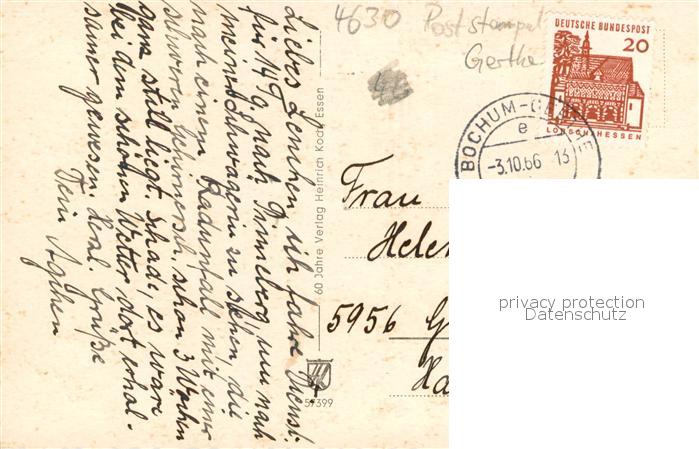 4630 Poststempel
Gerthe
DEUTSCHE BUNDESPOST
20
LORSCH/HESSEN
BOCHUM-GE
e
-3.10.66 13
Liebes Lenchen, ich fahre Dienst.
für 14 Tg. nach Pinneberg, um nach
meiner Schwägerin zu sehen, die
nach einem Radunfall mit einer
schweren Gehirnersch. schon 3 Wochen
ganz still liegt. Schade, es wäre
bei dem schönen Wetter dort erhol-
samer gewesen. Herzl. Grüße
Dein
60 Jahre Verlag Heinrich Koch, Essen
57399
Frau
Helen
5956 G
Ha
privacy protection
Datenschutz